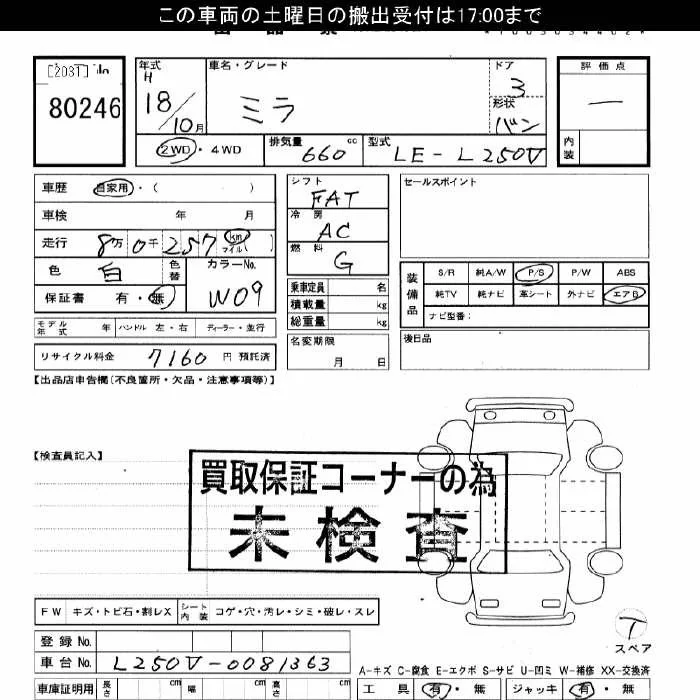 この車両の土曜日の搬出受付は17:00まで
[2031] No
80246
年式 H 18/10月
車名・グレード
ミラ
ドア 3
形状 バン
評価点
一
内装
2WD・4WD
排気量 660 cc
型式 LE-L250V
車歴 自家用・( )
車検 年 月
走行 8万0千257 km マイル( )
色 白 色替
カラーNo. W09
保証書 有・無
モデル年式 年 ハンドル 左・右 ディーラー・並行
リサイクル料金 7160 円 預託済
シフト FAT
冷房 AC
燃料 G
乗車定員 名
積載量 kg
総重量 kg
名変期限 月 日
セールスポイント
装備品
S/R 純A/W P/S P/W ABS
純TV 純ナビ 革シート 外ナビ エアB
ナビ型番:
後日品
【出品店申告欄(不良箇所・欠品・注意事項等)】
【検査員記入】
買取保証コーナーの為
未検査
FW キズ・トビ石・割レX シート内装 コゲ・穴・汚レ・シミ・破レ・スレ
登録No.
車台No. L250V-0081363
車庫証明用 長さ cm 幅 cm 高さ cm
T
スペア
A-キズ C-腐食 E-エクボ S-サビ U-凹ミ W-補修 XX-交換済
工具 有・無 ジャッキ 有・無